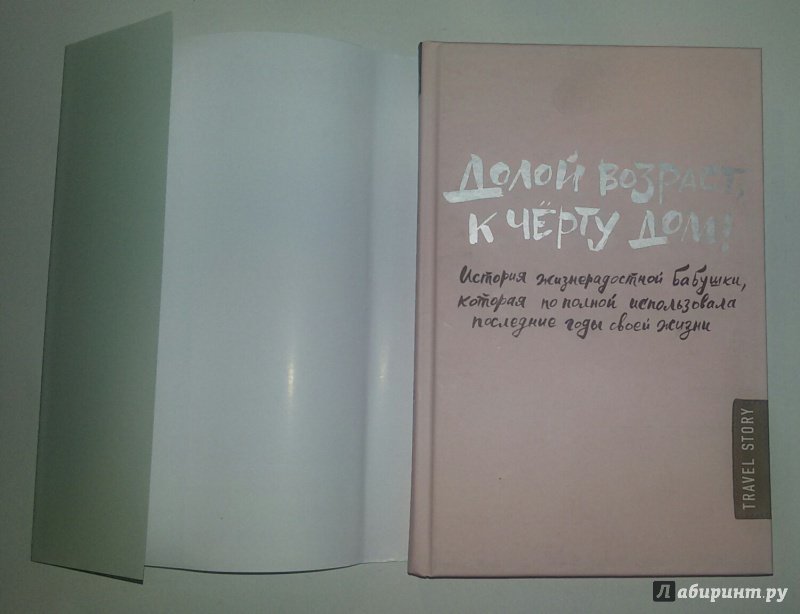 Долой возраст,
к чёрту дом!
История жизнерадостной бабушки,
которая по полной использовала
последние годы своей жизни
TRAVEL STORY
Лабиринт.ру